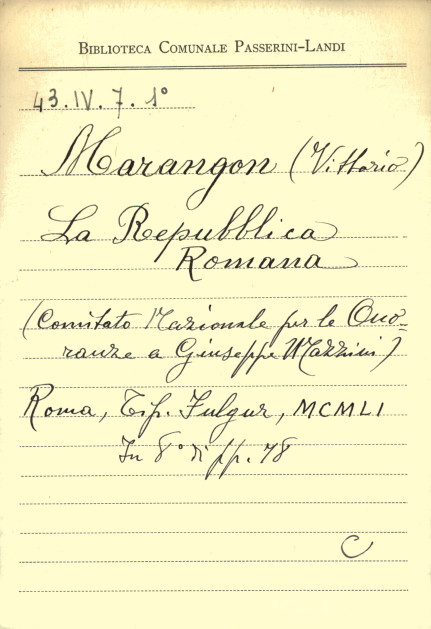 BIBLIOTECA COMUNALE PASSERINI-LANDI
43.IV.7.1°
Marangon (Vittorio)
La Repubblica
Romana
(Comitato Nazionale per le Ono=
ranze a Giuseppe Mazzini)
Roma, Tip. Fulgur, MCMLI
In 8° di pp. 78
C